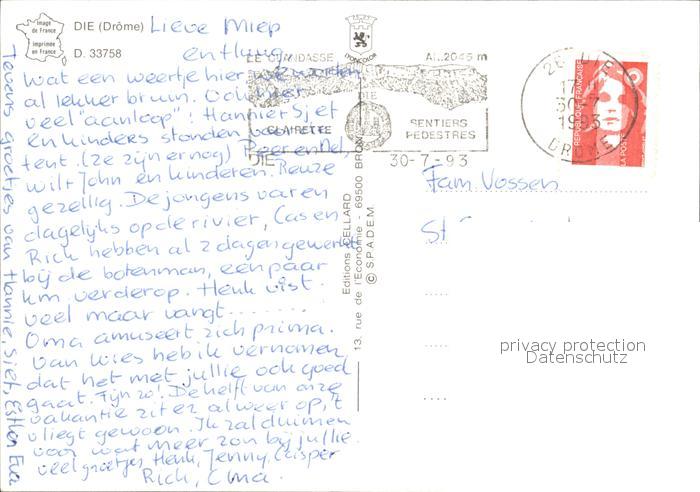 Image
de France
Imprimée
en France
DIE (Drôme)
D. 33758
Lieve Miep
en
Wat een weertje hier we worden
al lekker bruin. Ook hier
veel "aanloop": Hannie Sjef
en kinders stonden voor de
tent. (ze zijn er nog) Peer en Nel,
wilt John en kinderen. Reuze
gezellig. De jongens varen
dagelijks op de rivier, Cas en
Rick hebben al 2 dagen gewerkt
bij de botenman, een paar
km verderop. Henk vist.
veel maar vangt ........
Oma amuseert zich prima.
Van Wies heb ik vernomen
dat het met jullie ook goed
gaat. Fijn zo! De helft van onze
vakantie zit er al weer op, 't
vliegt gewoon. Ik zal duimen
voor wat meer zon bij jullie.
veel groetjes Henk, Jenny, Casper
Rick, Oma.
Tevens groetjes van Hannie, Sjef, Esther Eva
LYONCOLOR
LE GLANDASSE Al. 2045 m
DIE
CLAIRETTE
SENTIERS
PEDESTRES
DIE
30-7-93
26 DIE
17
30-7
1993
DROME
REPUBLIQUE FRANÇAISE
LA POSTE
Editions CELLARD
13, rue de l'Economie - 69500 BRON
© S.P.A.D.E.M.
Fam. Vossen
St
privacy protection
Datenschutz